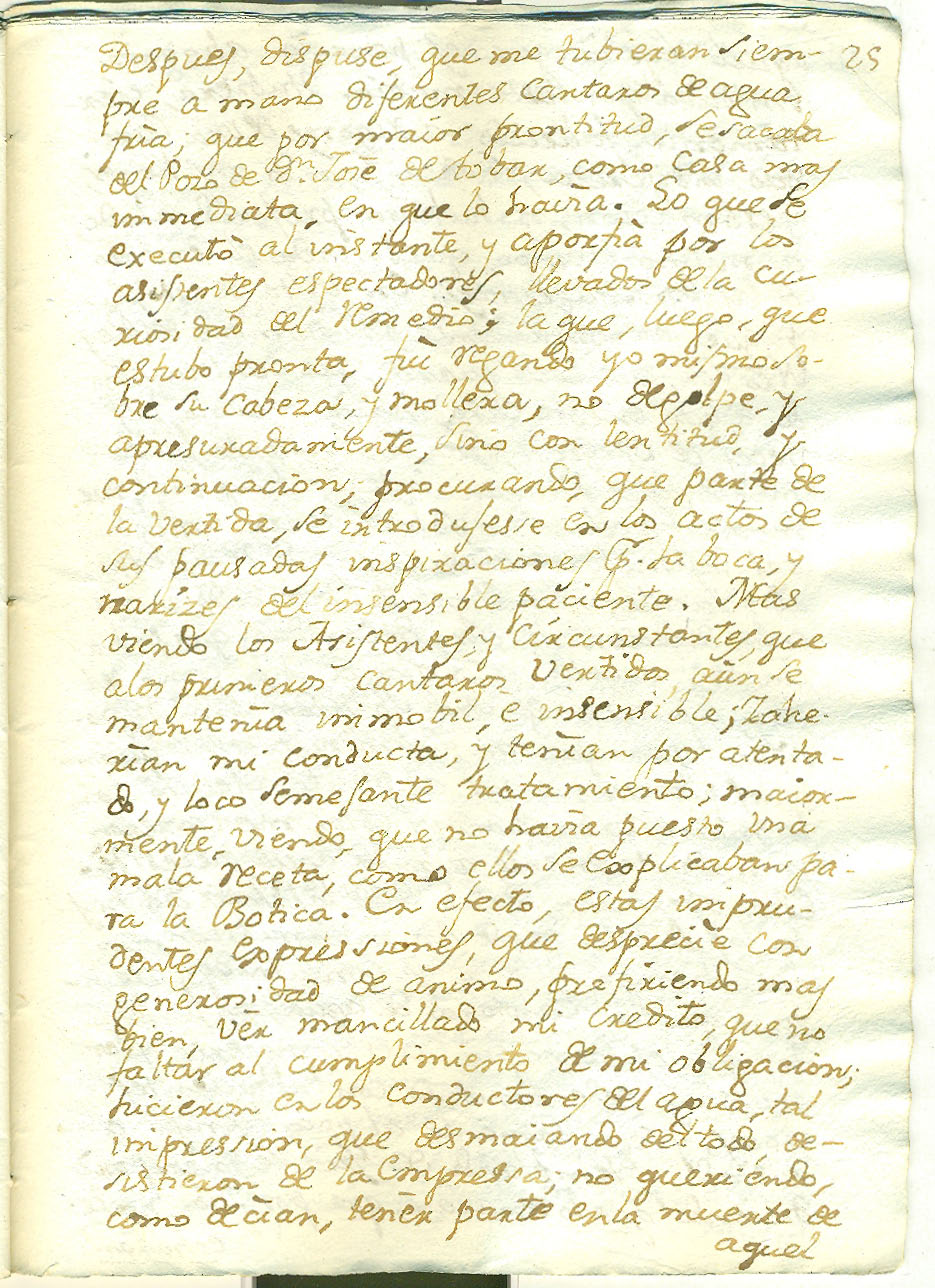 Despues, dispuse, que me tubieran siem- 25
pre a mano diferentes Cantaros de agua
fria; que por maior prontitud, se sacaba
del Pozo de Dn. Josè de tobar, como Casa mas
immediata, en que lo havìa. Lo que se
executò al instante, y aporfìa por los
asistentes espectadores, llevados de la cu-
riosidad del Remedio; la que, luego, que
estubo pronta, fuì regando yo mismo so-
bre su Cabeza, y mollera, no de golpe, y
apresuradamente, sino con lentitud, y
continuacion; procurando, que parte de
la vertida, se introdujesse en los actos de
sus pausadas inspiraciones pr. la boca, y
narizes del insensible paciente. Mas
viendo los Asistentes, y Circunstantes, que
alos primeros cantaros vertidos, aùn se
mantenìa immobil, e insensible; Zahe-
rìan mi conducta, y tenìan por atenta-
do, y loco semejante tratamiento; maior-
mente, viendo, que no havìa puesto una
mala receta, como ellos se explicaban pa-
ra la Botica. En efecto, estas impru-
dentes expressiones, que despreciè con
generosidad de animo, prefiriendo mas
bien, vèr mancillado mi credito, que no
faltar al cumplimiento de mi obligacion;
hicieron en los Conductores del agua, tal
impression, que desmaiando del todo, de-
sistieron de la Empressa; no queriendo,
como decìan, tenèr parte en la muerte de
aquel